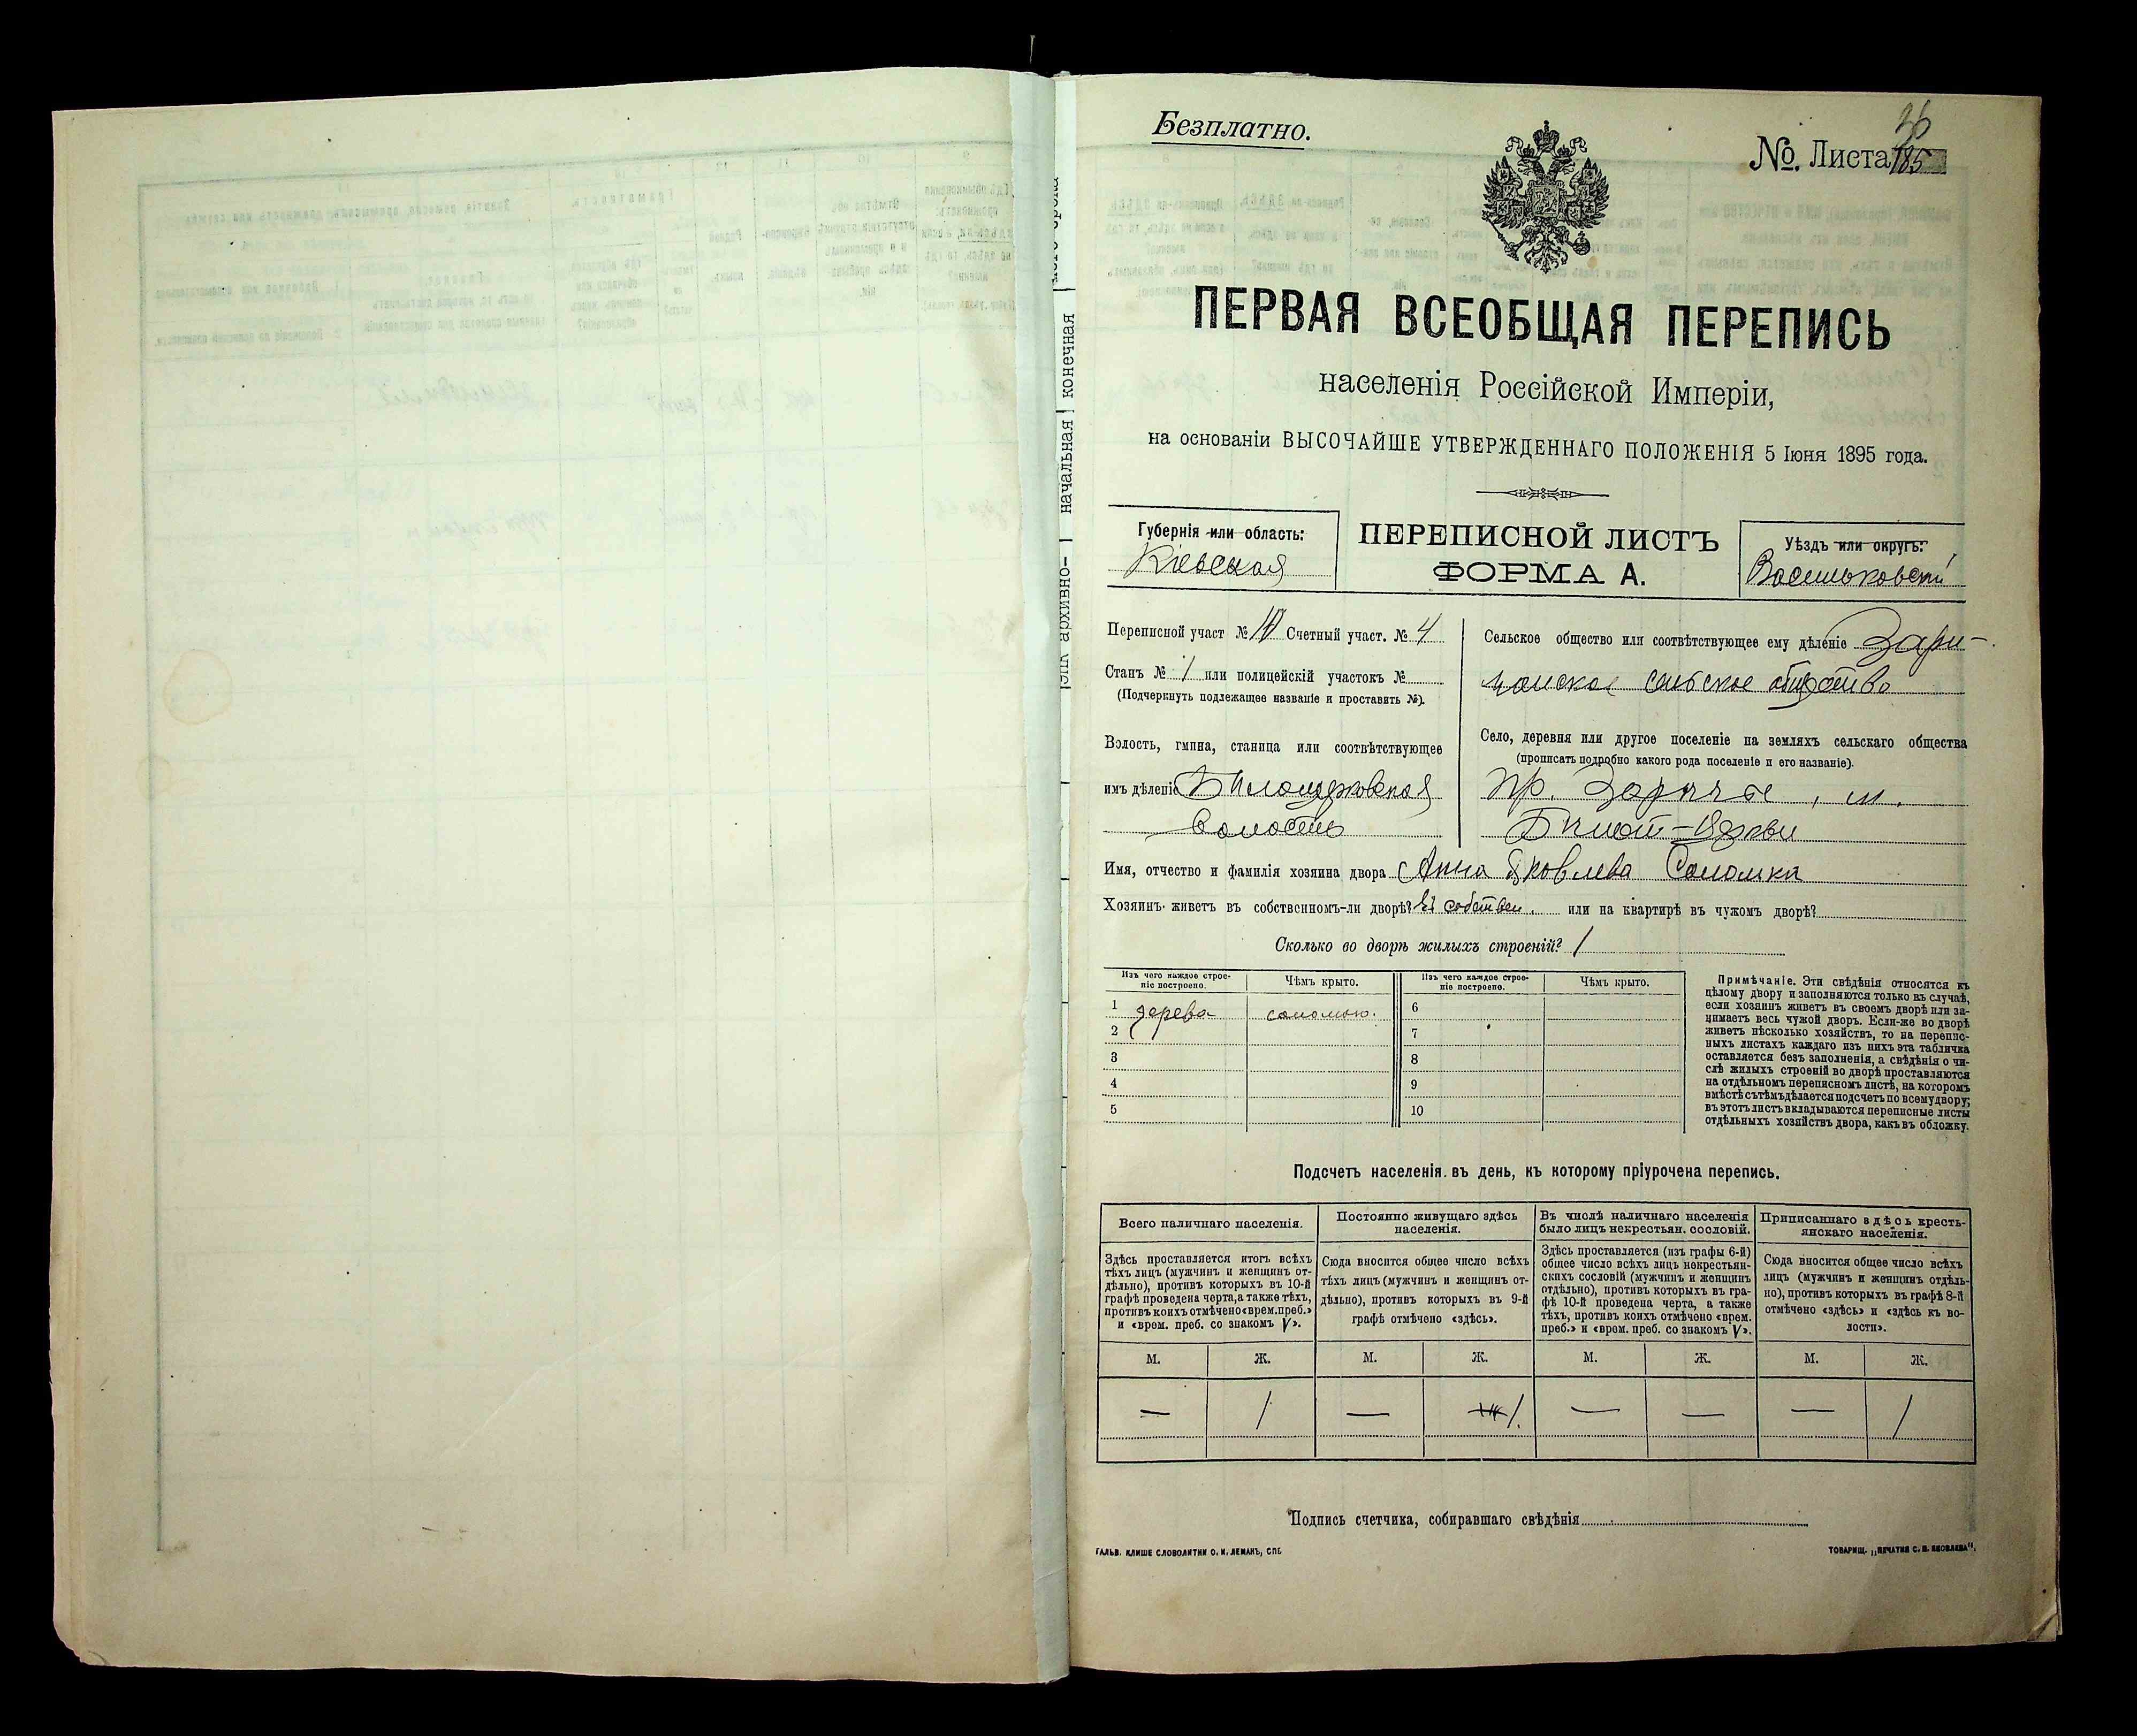 Безплатно.
26
№. Листа 185
ПЕРВАЯ ВСЕОБЩАЯ ПЕРЕПИСЬ
населенія Россійской Имперіи,
на основаніи ВЫСОЧАЙШЕ УТВЕРЖДЕННАГО ПОЛОЖЕНІЯ 5 Іюня 1895 года.
Губернія или область:
Кіевская
ПЕРЕПИСНОЙ ЛИСТЪ
ФОРМА А.
Уѣздъ или округъ:
Васильковскій
Переписной участ № 10 Счетный участ. № 4
Станъ № 1 или полицейскій участокъ №
(Подчеркнуть подлежащее названіе и проставить №).
Волость, гмина, станица или соотвѣтствующее
имъ дѣленіе Бѣлоцерковская
волость
Сельское общество или соотвѣтствующее ему дѣленіе Зари-
чанское сельское общество
Село, деревня или другое поселеніе на земляхъ сельскаго общества
(прописать подробно какого рода поселеніе и его названіе).
пр. Заричье, м.
Бѣлой-Церкви
Имя, отчество и фамилія хозяина двора Анна Яковлева Соломка
Хозяинъ живетъ въ собственномъ-ли дворѣ? въ собствен. или на квартирѣ въ чужомъ дворѣ?
Сколько во дворѣ жилыхъ строеній? 1
Изъ чего каждое строе-
ніе построено.
Чѣмъ крыто.
Изъ чего каждое строе-
ніе построено.
Чѣмъ крыто.
1 дерева соломою. 6
2 7
3 8
4 9
5 10
Примѣчаніе. Эти свѣдѣнія относятся къ
цѣлому двору и заполняются только въ случаѣ,
если хозяинъ живетъ въ своемъ дворѣ или за-
нимаетъ весь чужой дворъ. Если-же во дворѣ
живетъ нѣсколько хозяйствъ, то на перепис-
ныхъ листахъ каждаго изъ нихъ эта табличка
оставляется безъ заполненія, а свѣдѣнія о чи-
слѣ жилыхъ строеній во дворѣ проставляются
на отдѣльномъ переписномъ листѣ, на которомъ
вмѣстѣ съ тѣмъ дѣлается подсчетъ по всему двору;
въ этотъ листъ вкладываются переписные листы
отдѣльныхъ хозяйствъ двора, какъ въ обложку.
Подсчетъ населенія въ день, къ которому пріурочена перепись.
Всего наличнаго населенія.
Здѣсь проставляется итогъ всѣхъ
тѣхъ лицъ (мужчинъ и женщинъ от-
дѣльно), противъ которыхъ въ 10-й
графѣ проведена черта, а также тѣхъ,
противъ коихъ отмѣчено «врем. преб.»
и «врем. преб. со знакомъ V».
Постоянно живущаго здѣсь
населенія.
Сюда вносится общее число всѣхъ
тѣхъ лицъ (мужчинъ и женщинъ от-
дѣльно), противъ которыхъ въ 9-й
графѣ отмѣчено «здѣсь».
Въ числѣ наличнаго населенія
было лицъ некрестьян. сословій.
Здѣсь проставляется (изъ графы 6-й)
общее число всѣхъ лицъ некрестьян-
скихъ сословій (мужчинъ и женщинъ
отдѣльно), противъ которыхъ въ гра-
фѣ 10-й проведена черта, а также
тѣхъ, противъ коихъ отмѣчено «врем.
преб.» и «врем. преб. со знакомъ V».
Приписаннаго здѣсь кресть-
янскаго населенія.
Сюда вносится общее число всѣхъ
лицъ (мужчинъ и женщинъ отдѣль-
но), противъ которыхъ въ графѣ 8-й
отмѣчено «здѣсь» и «здѣсь къ во-
лости».
М. Ж. М. Ж. М. Ж. М. Ж.
— 1 — 1. — — — 1
Подпись счетчика, собиравшаго свѣдѣнія
ГАЛЬВ. КЛИШЕ СЛОВОЛИТНИ О. И. ЛЕМАНЪ, СПБ
ТОВАРИЩ. „ПЕЧАТНЯ С. П. ЯКОВЛЕВА“.
начальная конечная